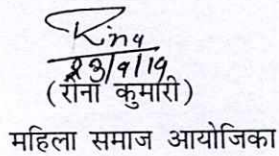 Rina
23/9/19
(रीना कुमारी)
महिला समाज आयोजिका